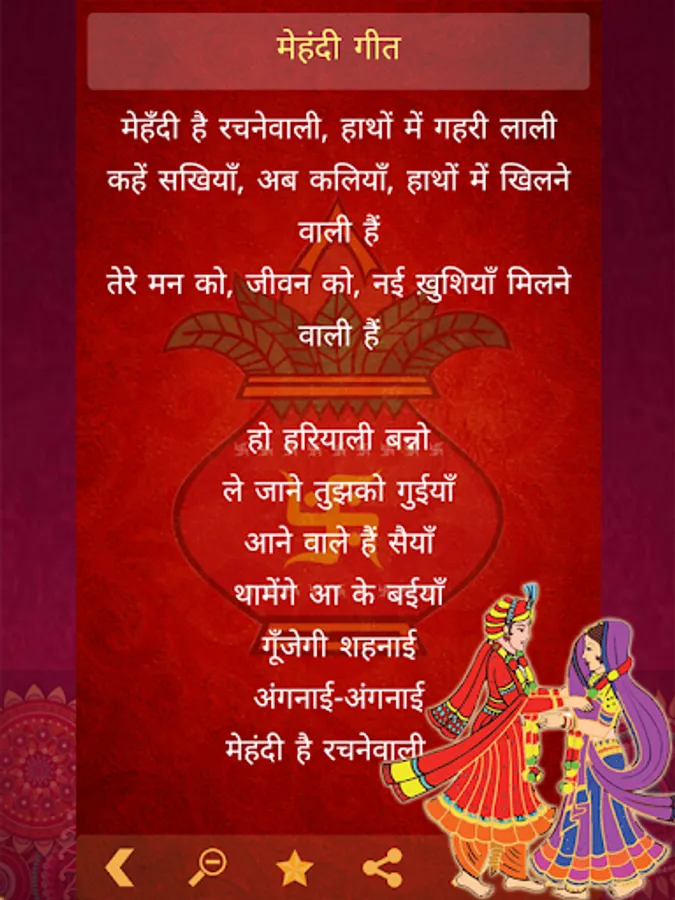 मेहंदी गीत
मेहँदी है रचनेवाली, हाथों में गहरी लाली
कहें सखियाँ, अब कलियाँ, हाथों में खिलने
वाली हैं
तेरे मन को, जीवन को, नई ख़ुशियाँ मिलने
वाली हैं
हो हरियाली बन्नो
ले जाने तुझको गुईयाँ
आने वाले हैं सैयाँ
थामेंगे आ के बईयाँ
गूँजेगी शहनाई
अंगनाई-अंगनाई
मेहंदी है रचनेवाली